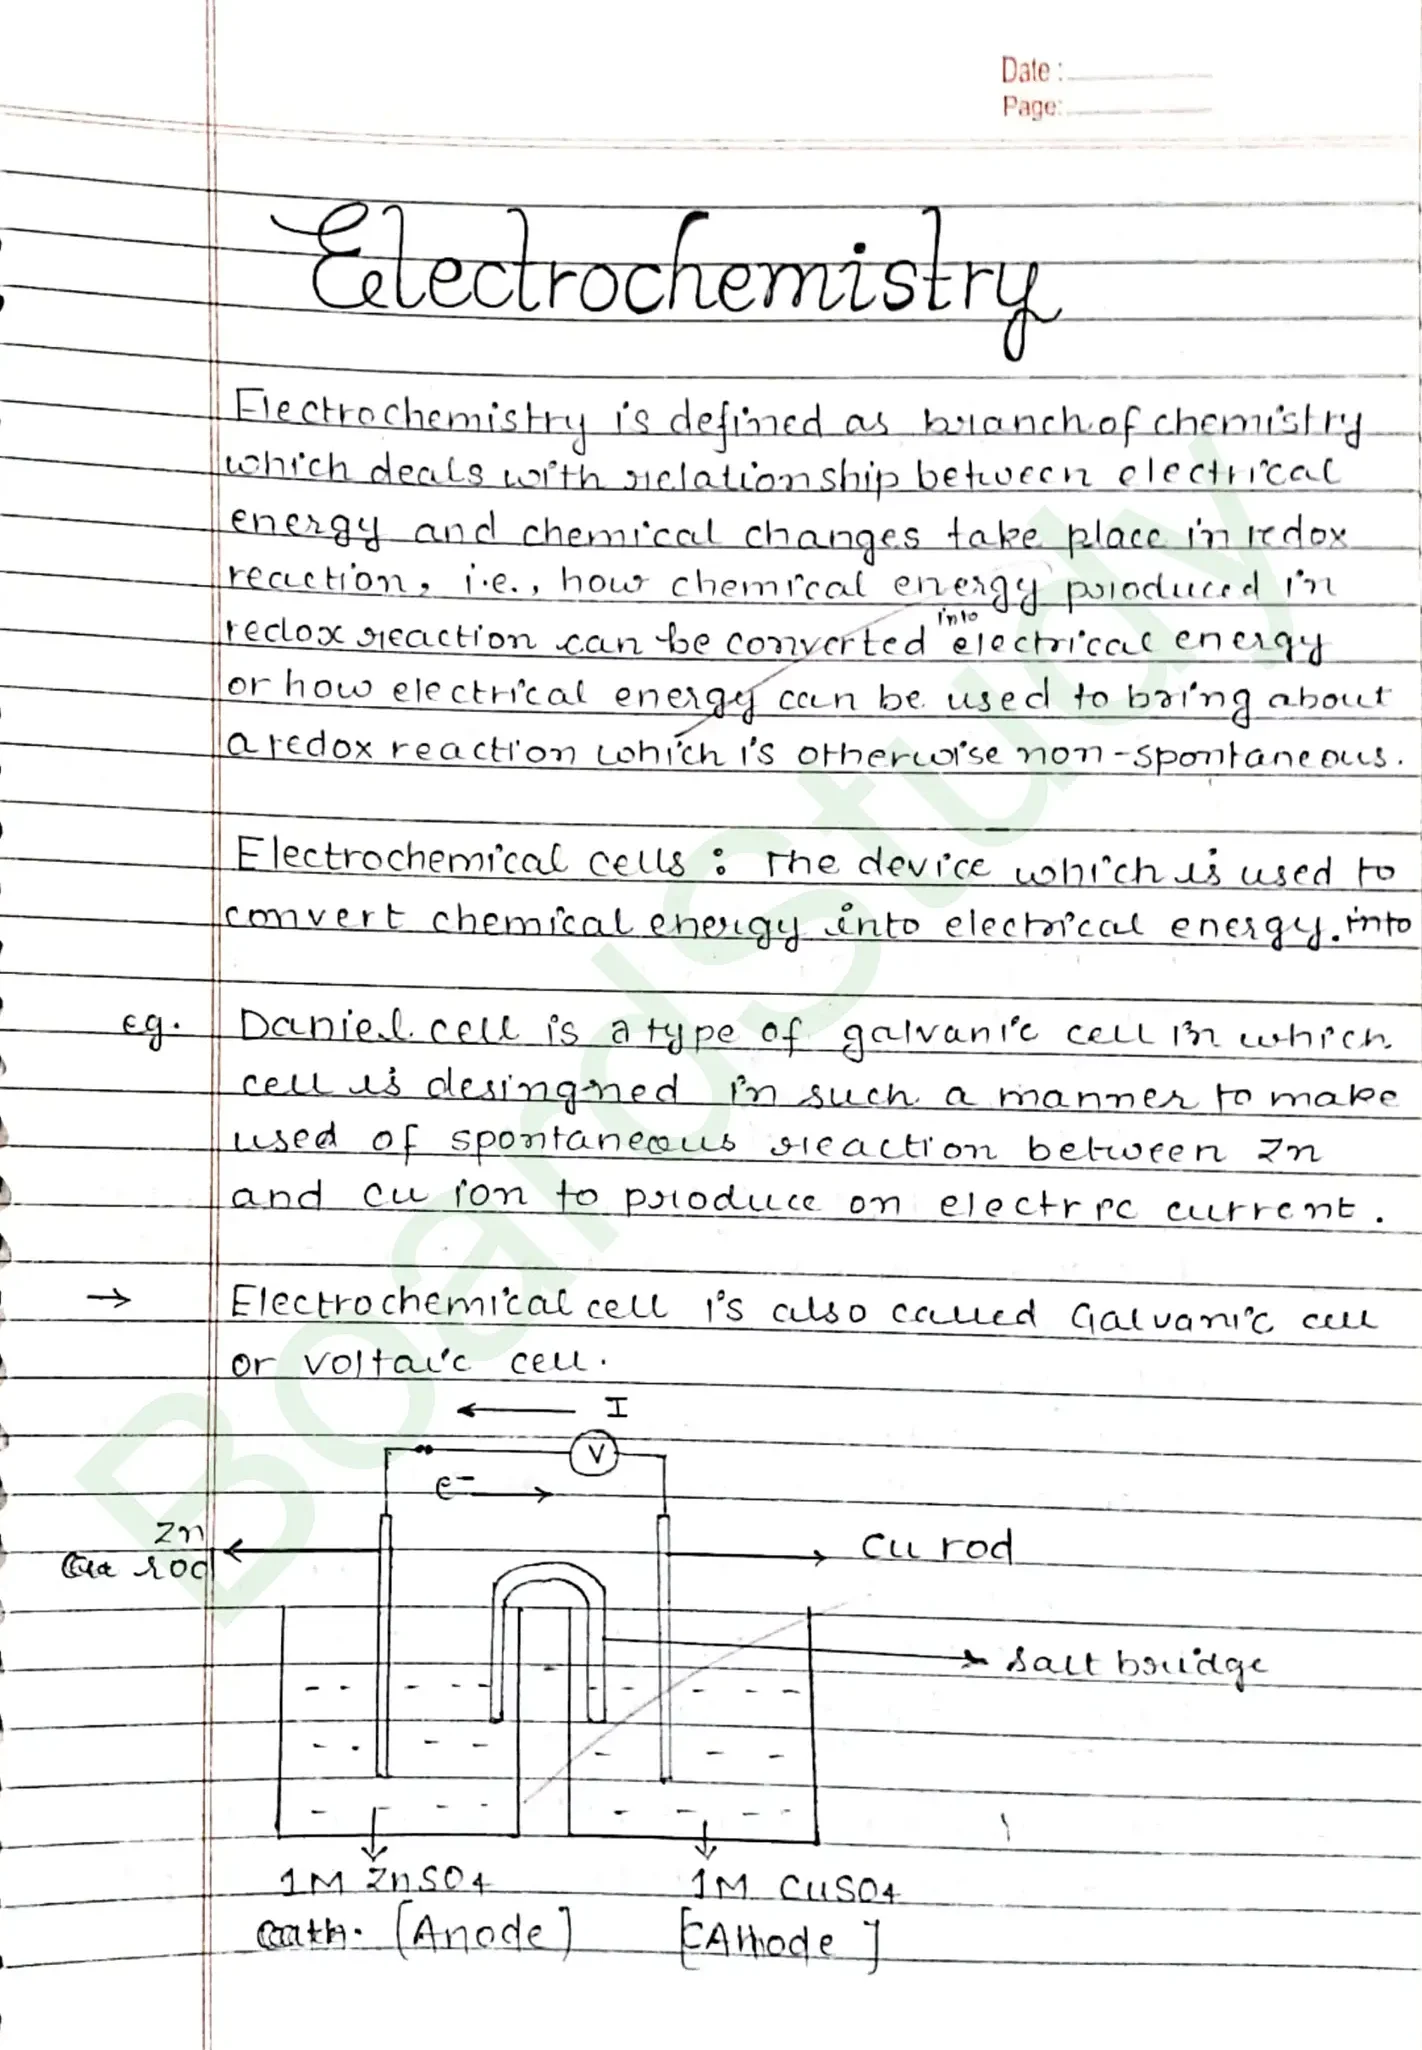 Date :
Page:
Electrochemistry
Electrochemistry is defined as branch of chemistry
which deals with relationship between electrical
energy and chemical changes take place in redox
reaction, i.e., how chemical energy produced in
redox reaction can be converted into electrical energy
or how electrical energy can be used to bring about
a redox reaction which is otherwise non-spontaneous.
Electrochemical cells : The device which is used to
convert chemical energy into electrical energy. into
eg. Daniel cell is a type of galvanic cell in which
cell is desingned in such a manner to make
used of spontaneous reaction between Zn
and Cu ion to produce on electric current.
→ Electrochemical cell is also called Galvanic cell
or voltaic cell.
← I
V
e⁻ →
Zn
rod
Cu rod
salt bridge
1M ZnSO4 1M CuSO4
cath. [Anode] [CAthode]
BoardStudy